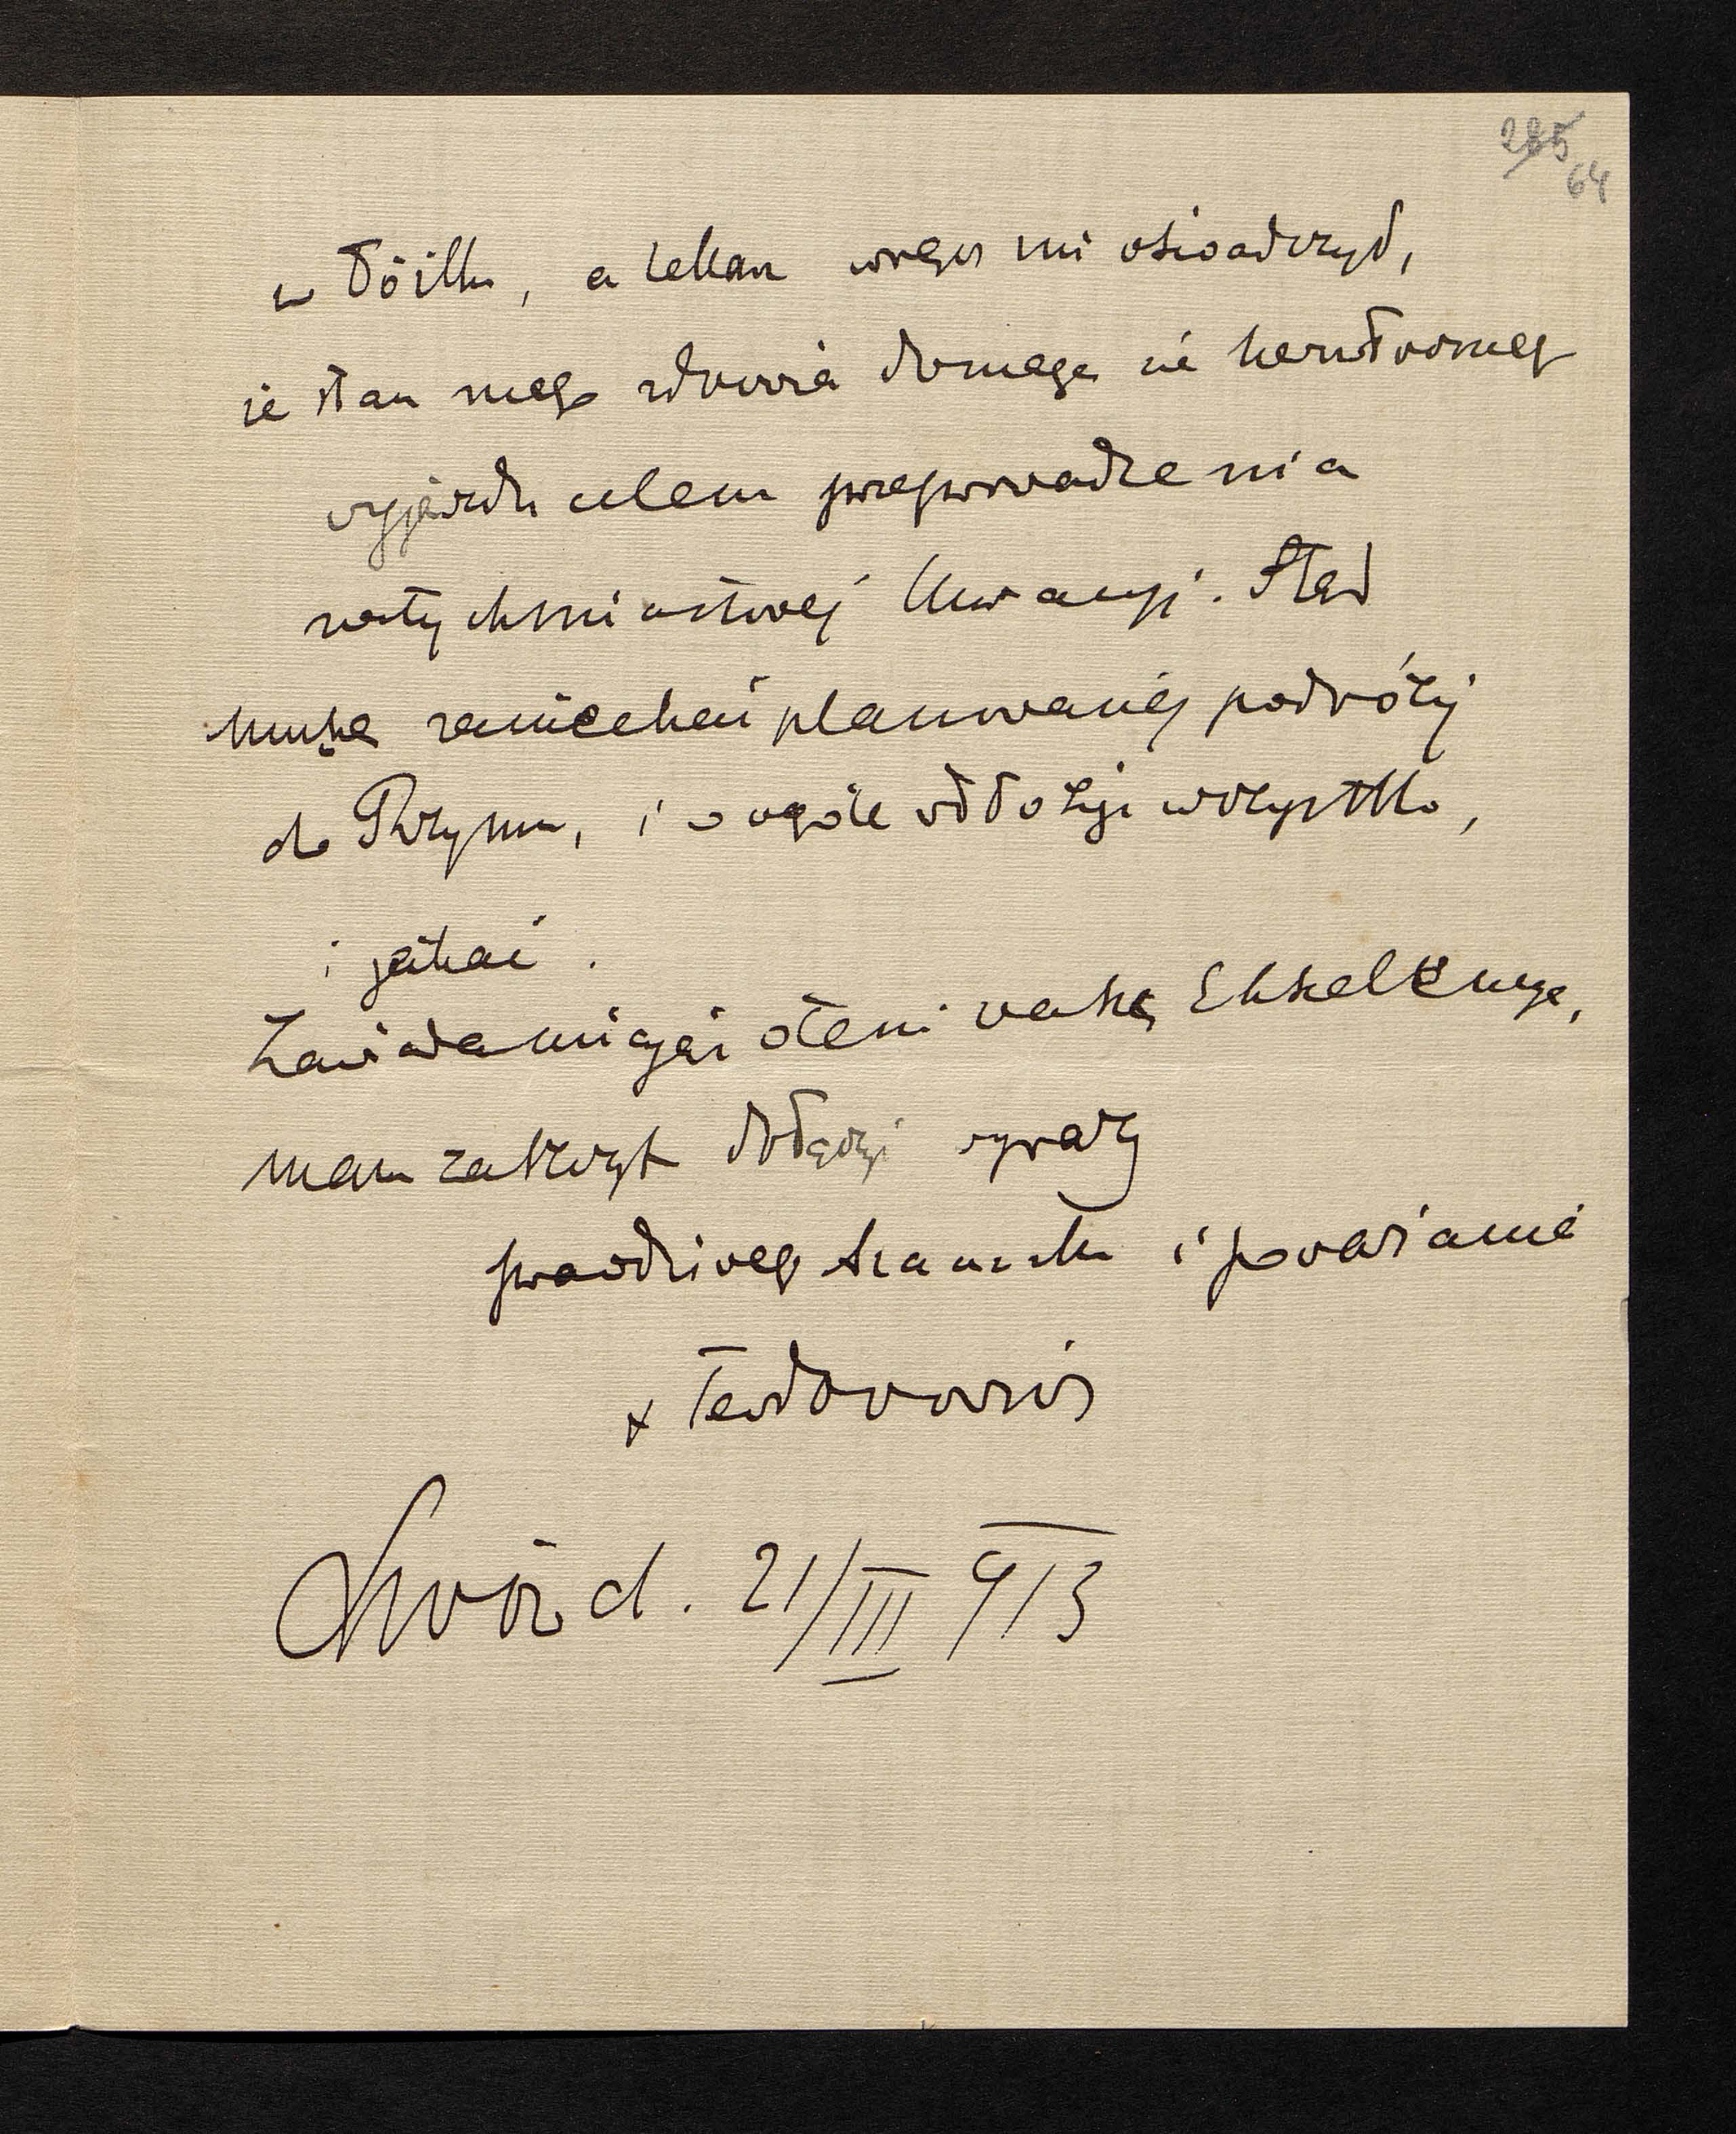 285
64
w łóżku, a lekarz wręcz mi oświadczył,
że stan mego zdrowia domaga się bezzwłocznego
wyjazdu celem przeprowadzenia
natychmiastowej kuracyi. Stąd
muszę zaniechać planowanej podróży
do Rzymu, i w ogóle odłożyć wszystko,
i jechać.
Zawiadamiając o tem Waszą Ekscelencyę,
mam zaszczyt dołączyć wyrazy
prawdziwego szacunku i poważania
+ Teodorowicz
Lwów d. 21/III 913